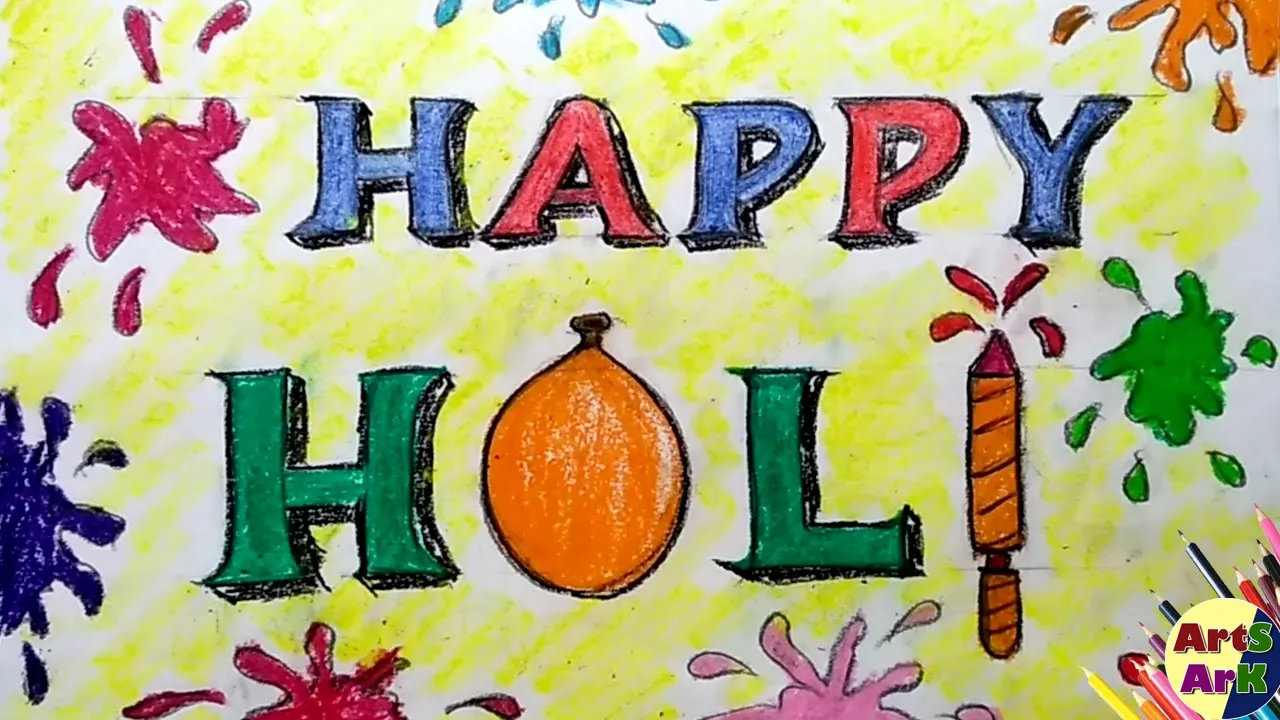 HAPPY
HOLI
ArtS
ArK